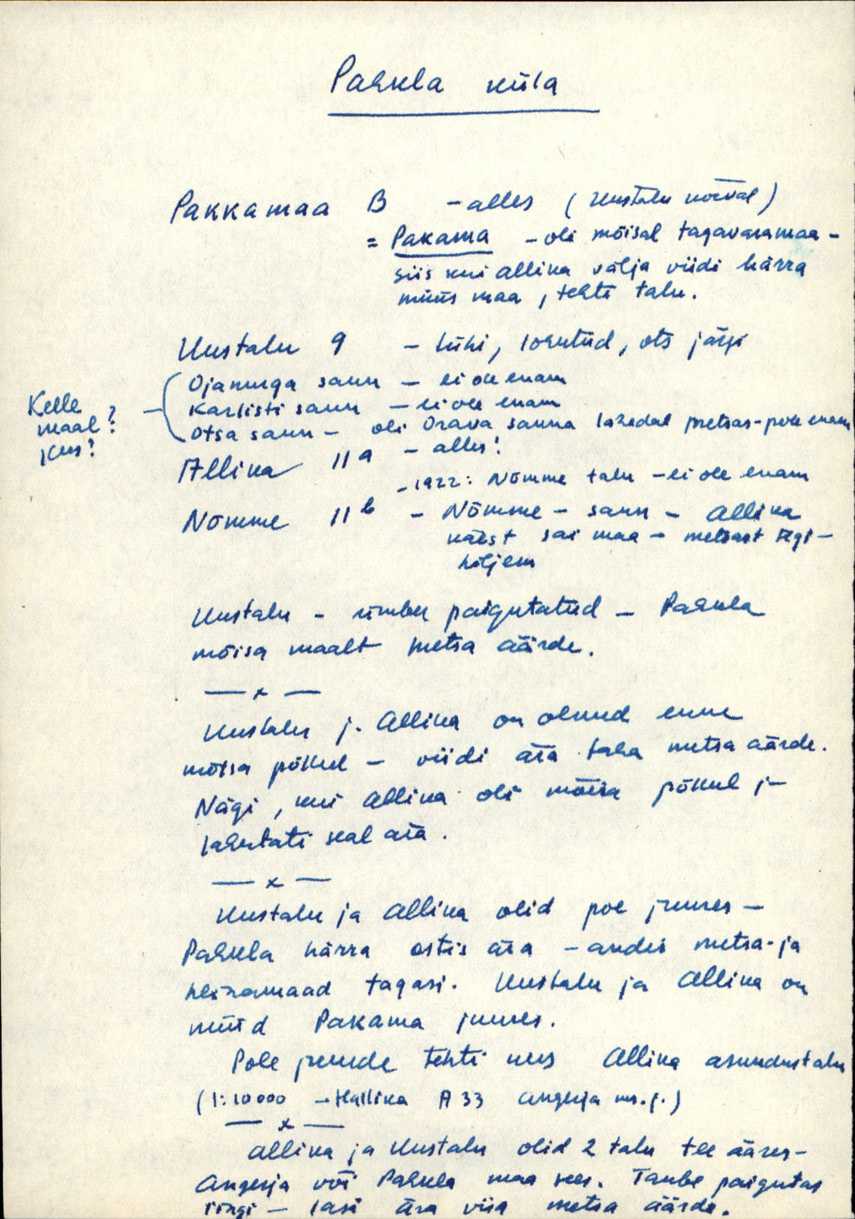 Pahkla küla
Pakkamaa B - alles (Uustalu kõrval)
= Pakama - oli mõisal tagavaramaa -
siis kui Allika välja viidi härra
müüs maa, tehti talu.
Uustalu 9 - lühi, lohutud, ots järgi
Ojanurga saun - ei ole enam
Karlisti saun - ei ole enam
Kelle
maal?
Kus?
Otsa saun - oli Orava sauna lähedal metsas - pole enam
Allika 11a - alles!
- 1922: Nõmme talu - ei ole enam
Nõmme 11b - Nõmme - saun - Allika
käest sai maa - metsast tegi -
hiljem
Uustalu - ümber paigutatud - Pahkla
mõisa maalt metsa äärde.
— x —
Uustalu j. Allika on olnud enne
mõisa põllul - viidi ära taha metsa äärde.
Nägi, kui Allika oli mõisa põllul j-
lahutati seal ära.
— x —
Uustalu ja Allika olid poe juures -
Pahkla härra ostis ära - andis metsa- ja
heinamaad tagasi. Uustalu ja Allika on
nüüd Pakama juures.
Pole juurde tehti uus Allika asundustalu
(1:10000 - Hallika A 33 Angerja
— x —
Allika ja Uustalu olid 2 talu tee ääres -
Angerja või Pahkla maa sees. Taube paigutas
ringi - lasi ära viia metsa äärde.